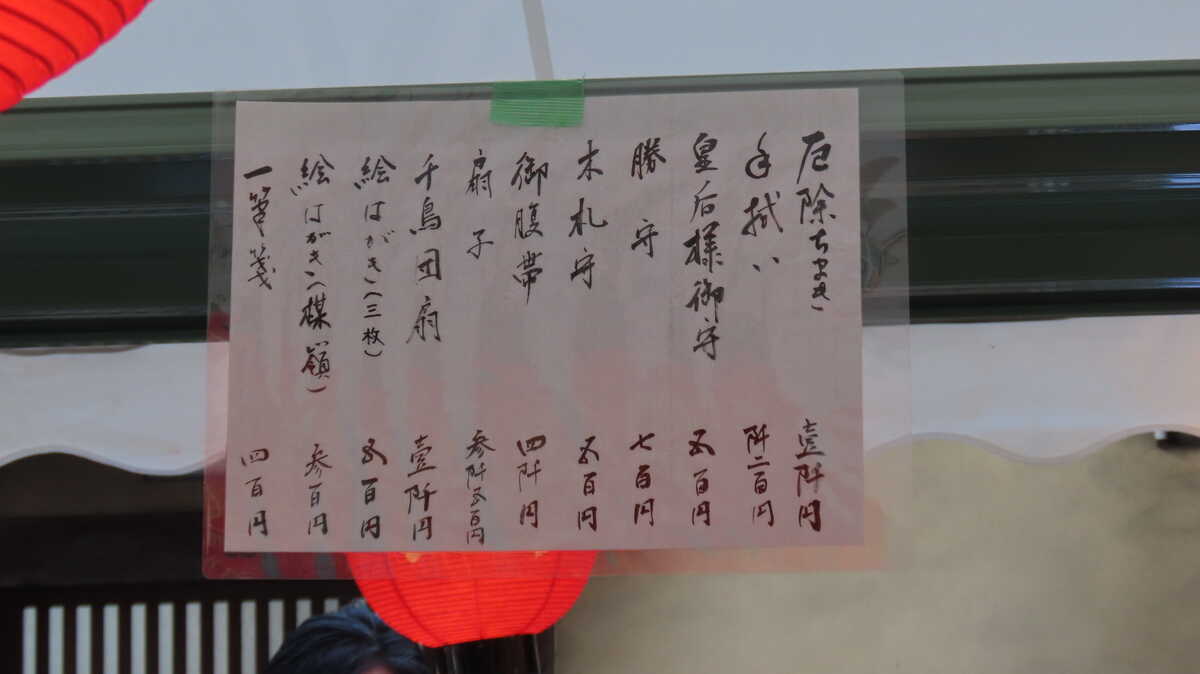 厄除ちまき 壹阡円
手拭い 阡二百円
皇后様御守 五百円
勝守 七百円
木札守 五百円
御腹帯 四阡円
扇子 参阡五百円
千鳥団扇 壹阡円
絵はがき(三枚) 五百円
絵はがき(楳嶺) 参百円
一筆箋 四百円